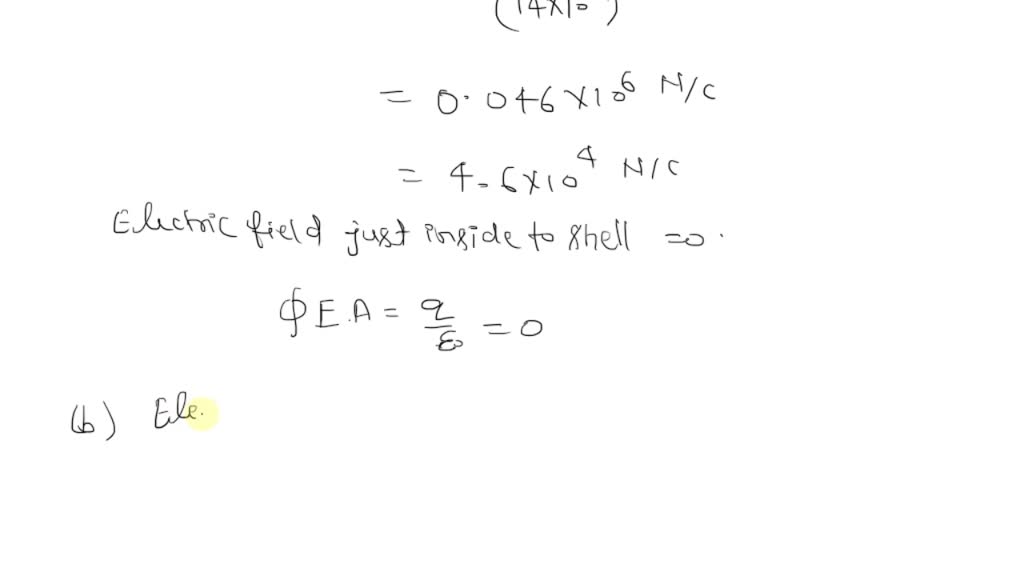 (14×10 )
= 0.046×10⁶ N/C
= 4.6×10⁴ N/C
Electric field just inside to shell =0.
∮E.A = q/ε₀ = 0
(b) Ele.